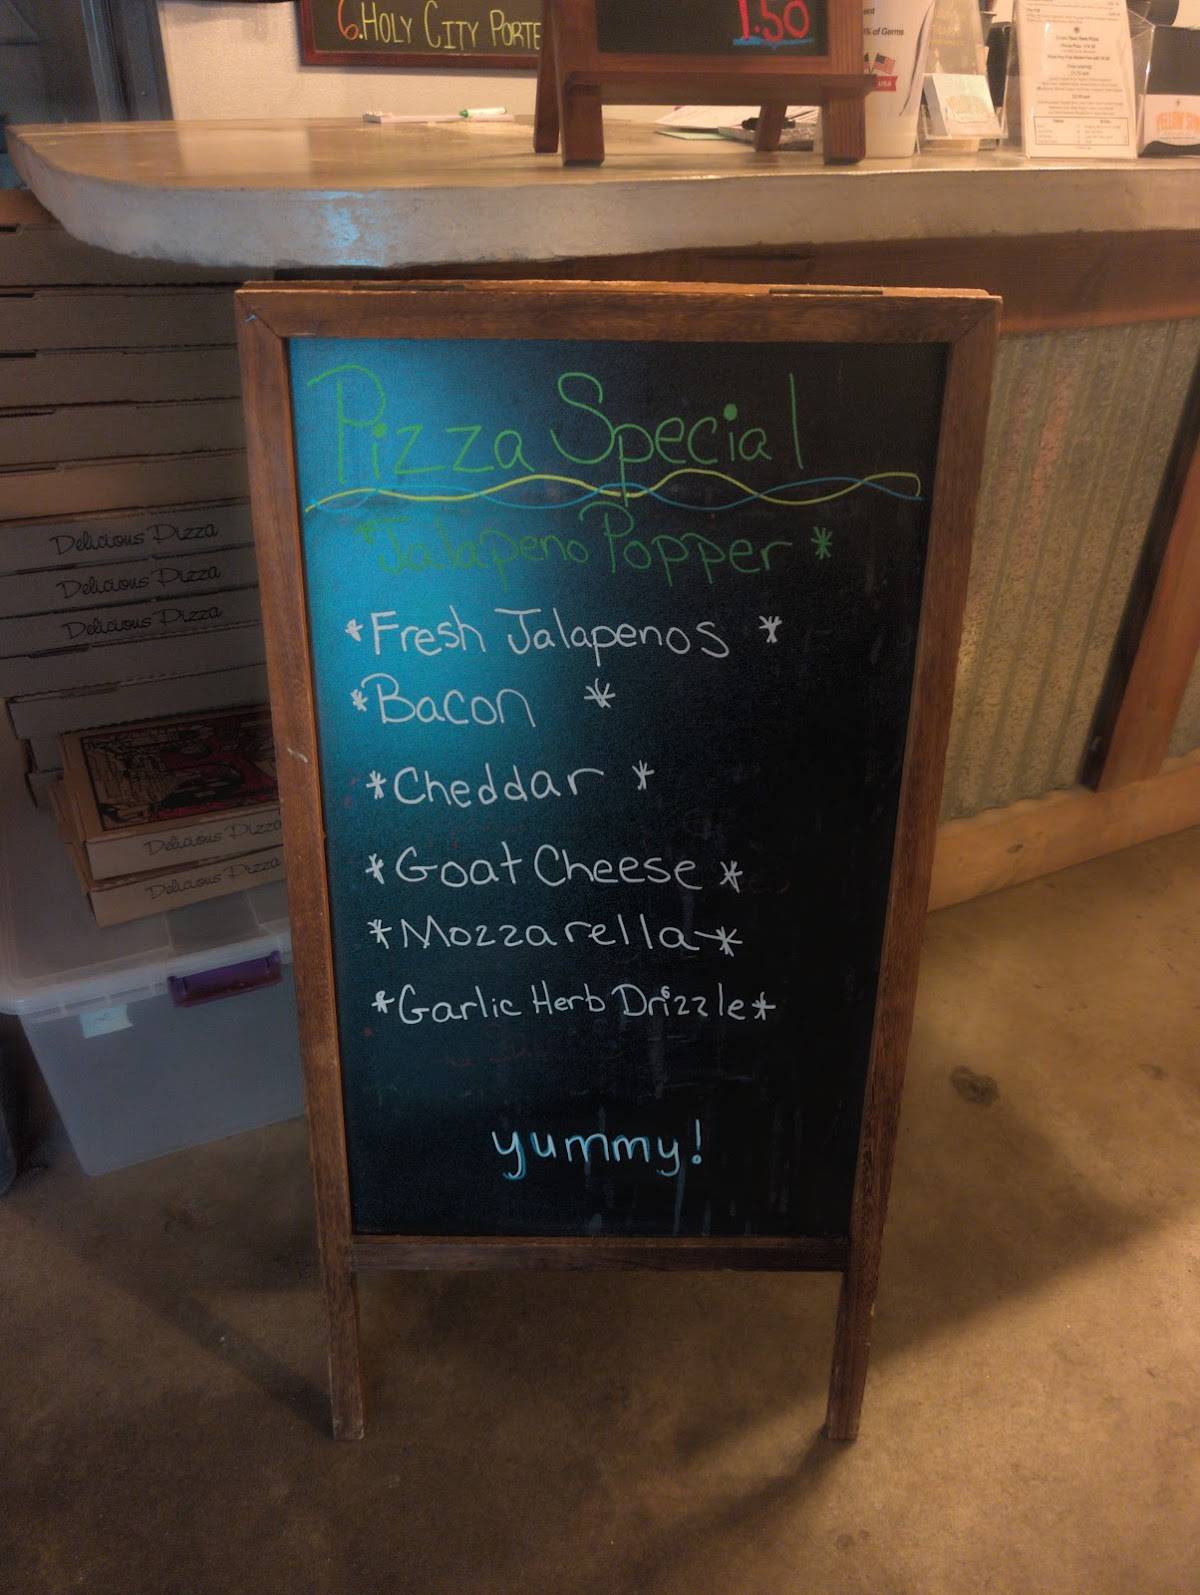 6. HOLY CITY PORTE
1.50
% of Germs
USA
Pizza Special
*Jalapeno Popper *
*Fresh Jalapenos *
*Bacon *
*Cheddar *
*Goat Cheese *
*Mozzarella *
*Garlic Herb Drizzle*
yummy!
Delicious Pizza
Delicious Pizza
Delicious Pizza
Delicious Pizza
Delicious Pizza